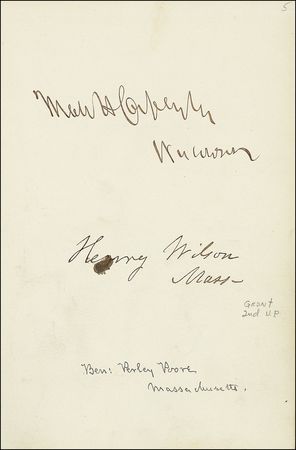 5
Matt H Carpenter
Wisconsin
Henry Wilson
Mass
GRANT
2nd V.P.
Ben: Perley Poore
Massachusetts.